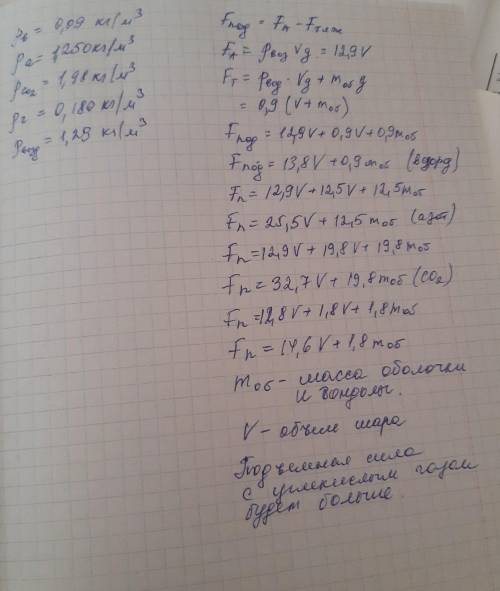 ρв = 0,09 кг/м³
ρа = 1,250 кг/м³
ρco₂ = 1,98 кг/м³
ρг = 0,180 кг/м³
ρвозд = 1,29 кг/м³
Fпод = Fа - Fтяж
FА = ρвоз Vg = 12,9V
Fт = ρвод · Vg + mоб g
= 0,9 (V + mоб)
Fпод = 12,9V + 0,9V + 0,9mоб
Fпод = 13,8V + 0,9mоб (водор)
Fп = 12,9V + 12,5V + 12,5mоб
Fп = 25,5V + 12,5mоб (азот)
Fп = 12,9V + 19,8V + 19,8mоб
Fп = 32,7V + 19,8mоб (CO₂)
Fп = 12,8V + 1,8V + 1,8mоб
Fп = 14,6V + 1,8mоб
mоб - масса оболочки
и гондолы.
V - объем шара
Подъемная сила
с углекислым газом
будет больше.